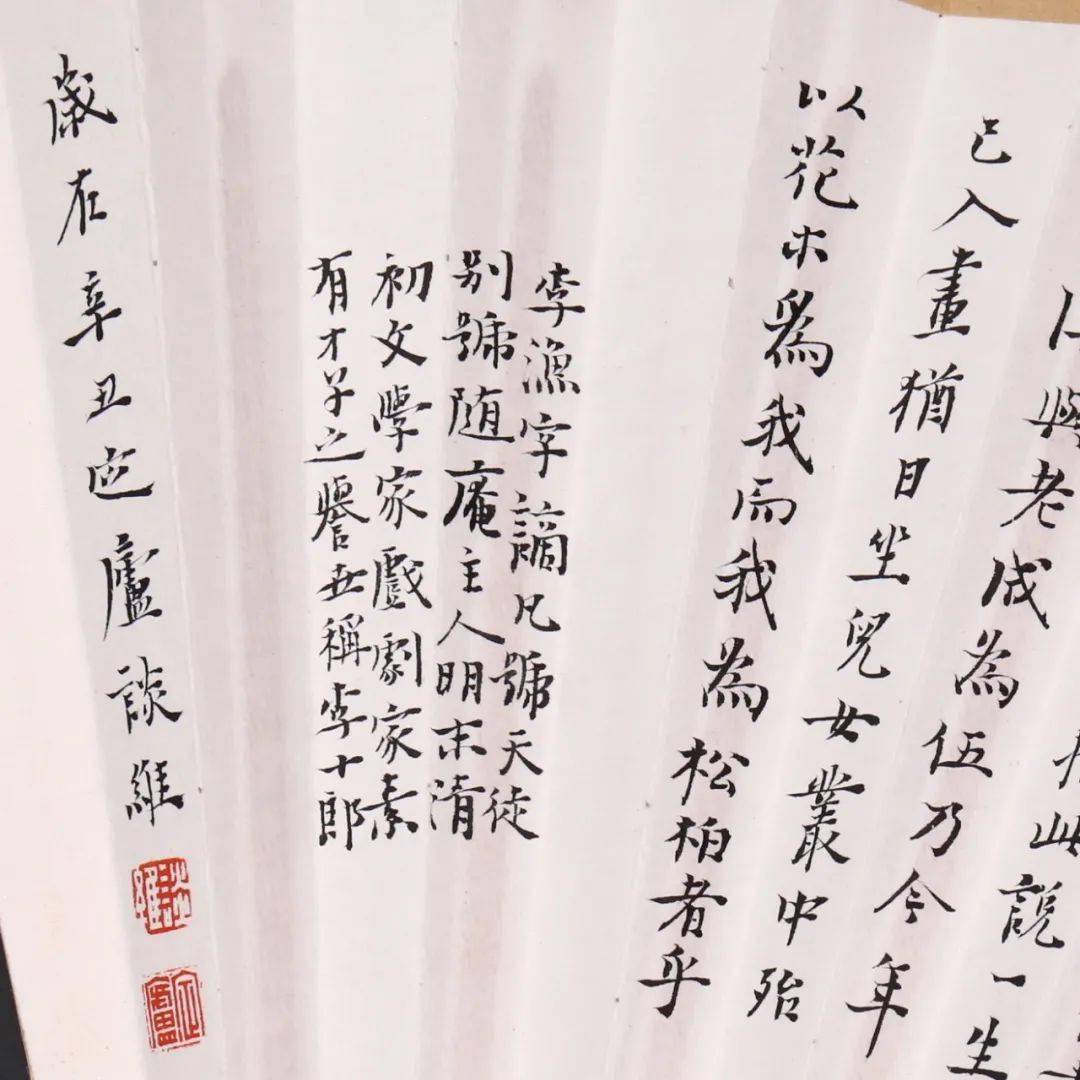 此說一生
與老成為伍乃今年
已入畫猶日坐兒女叢中殆
以花木為我而我為松柏者乎
李漁字謫凡號天徒
别號随庵主人明末清
初文學家戲劇家素
有才子之譽世稱李十郎
歲在辛丑定廬談維
談維
定廬